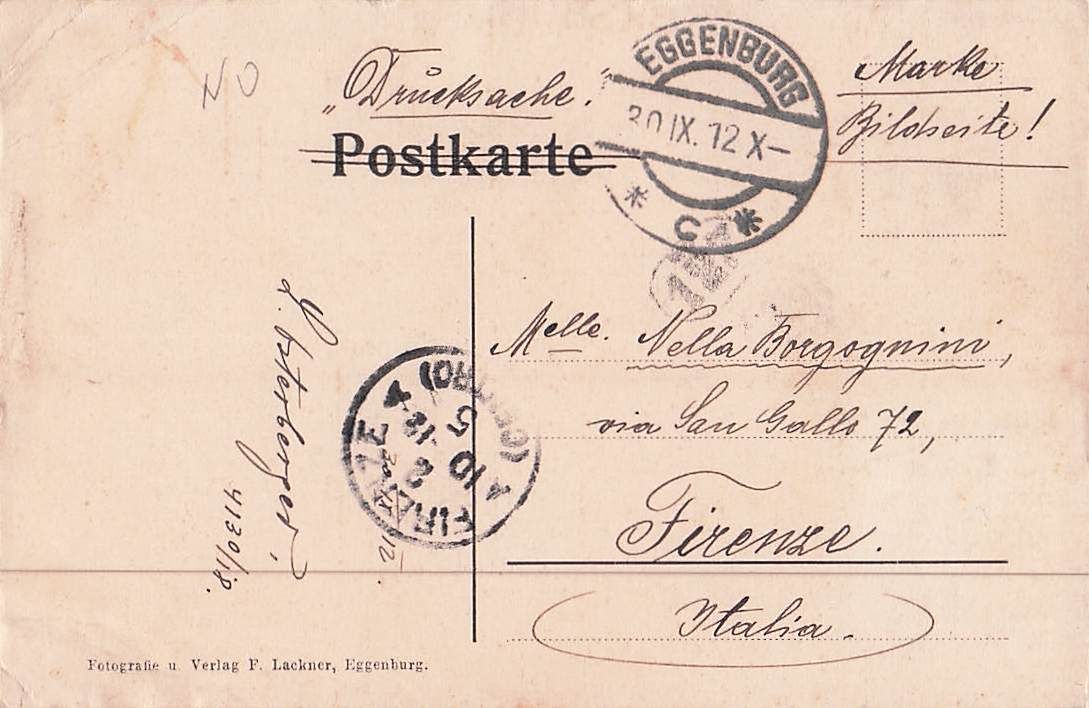 NO
„Drucksache.“
Postkarte
EGGENBURG
30 IX. 12 X–
* C *
Marke
Bildseite!
Melle. Nella Borgognini,
via San Gallo 72,
Firenze.
Italia.
FIRENZE
(CENTRO)
5
10
4130/18.
Fotografie u. Verlag F. Lackner, Eggenburg.